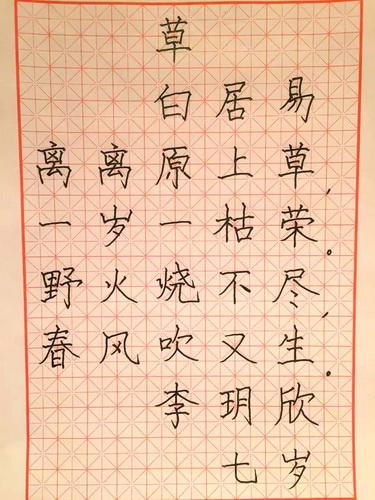 草
白居易
离离原上草，
一岁一枯荣。
野火烧不尽，
春风吹又生。
李玥欣
七岁